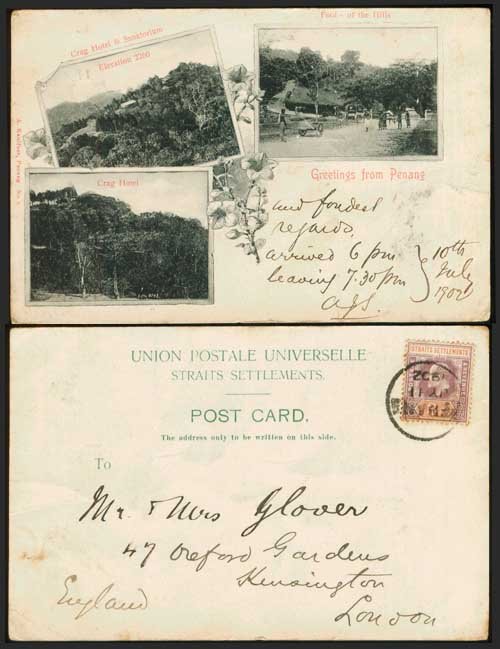 Crag Hotel & Sanatorium
Elevation 2260
Foot-of the Hills
A. Kaulfuss, Penang No.
Crag Hotel
Greetings from Penang
and fondest
regards.
arrived 6 pm
leaving 7.30 pm
10th
July
1902
UNION POSTALE UNIVERSELLE
STRAITS SETTLEMENTS.
POST CARD.
The address only to be written on this side.
STRAITS SETTLEMENTS
To
Mr. & Mrs Glover
47 Oxford Gardens
Kensington
England
London